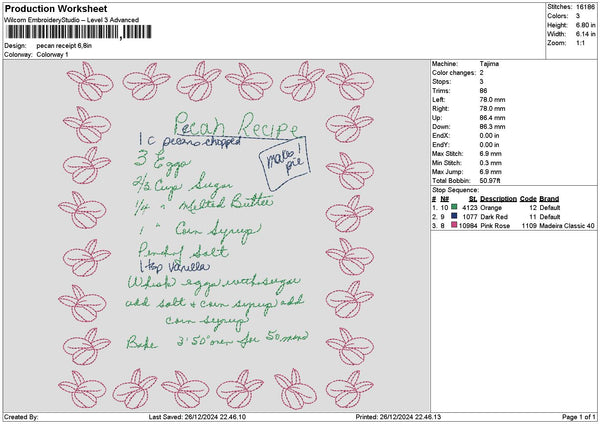 Production Worksheet
Wilcom EmbroideryStudio – Level 3 Advanced
Stitches: 16186
Colors: 3
Height: 6.80 in
Width: 6.14 in
Zoom: 1:1
Design: pecan receipt 6,8in
Colorway: Colorway 1
Pecan Recipe
1 c pecans chopped
makes 1 pie
3 Eggs
2/3 Cup Sugar
1/4 " Melted Butter
1 " Corn Syrup
Pinch of Salt
1 tsp Vanilla
Whisk eggs with sugar
add salt & corn syrup add
corn syrup
Bake 350° oven for 50 mins
Machine: Tajima
Color changes: 2
Stops: 3
Trims: 86
Left: 78.0 mm
Right: 78.0 mm
Up: 86.4 mm
Down: 86.3 mm
EndX: 0.00 in
EndY: 0.00 in
Max Stitch: 6.9 mm
Min Stitch: 0.3 mm
Max Jump: 6.9 mm
Total Bobbin: 50.97ft
Stop Sequence:
# N# St. Description Code Brand
1. 10 4123 Orange 12 Default
2. 9 1077 Dark Red 11 Default
3. 8 10984 Pink Rose 1109 Madeira Classic 40
Created By:
Last Saved: 26/12/2024 22.46.10
Printed: 26/12/2024 22.46.13
Page 1 of 1